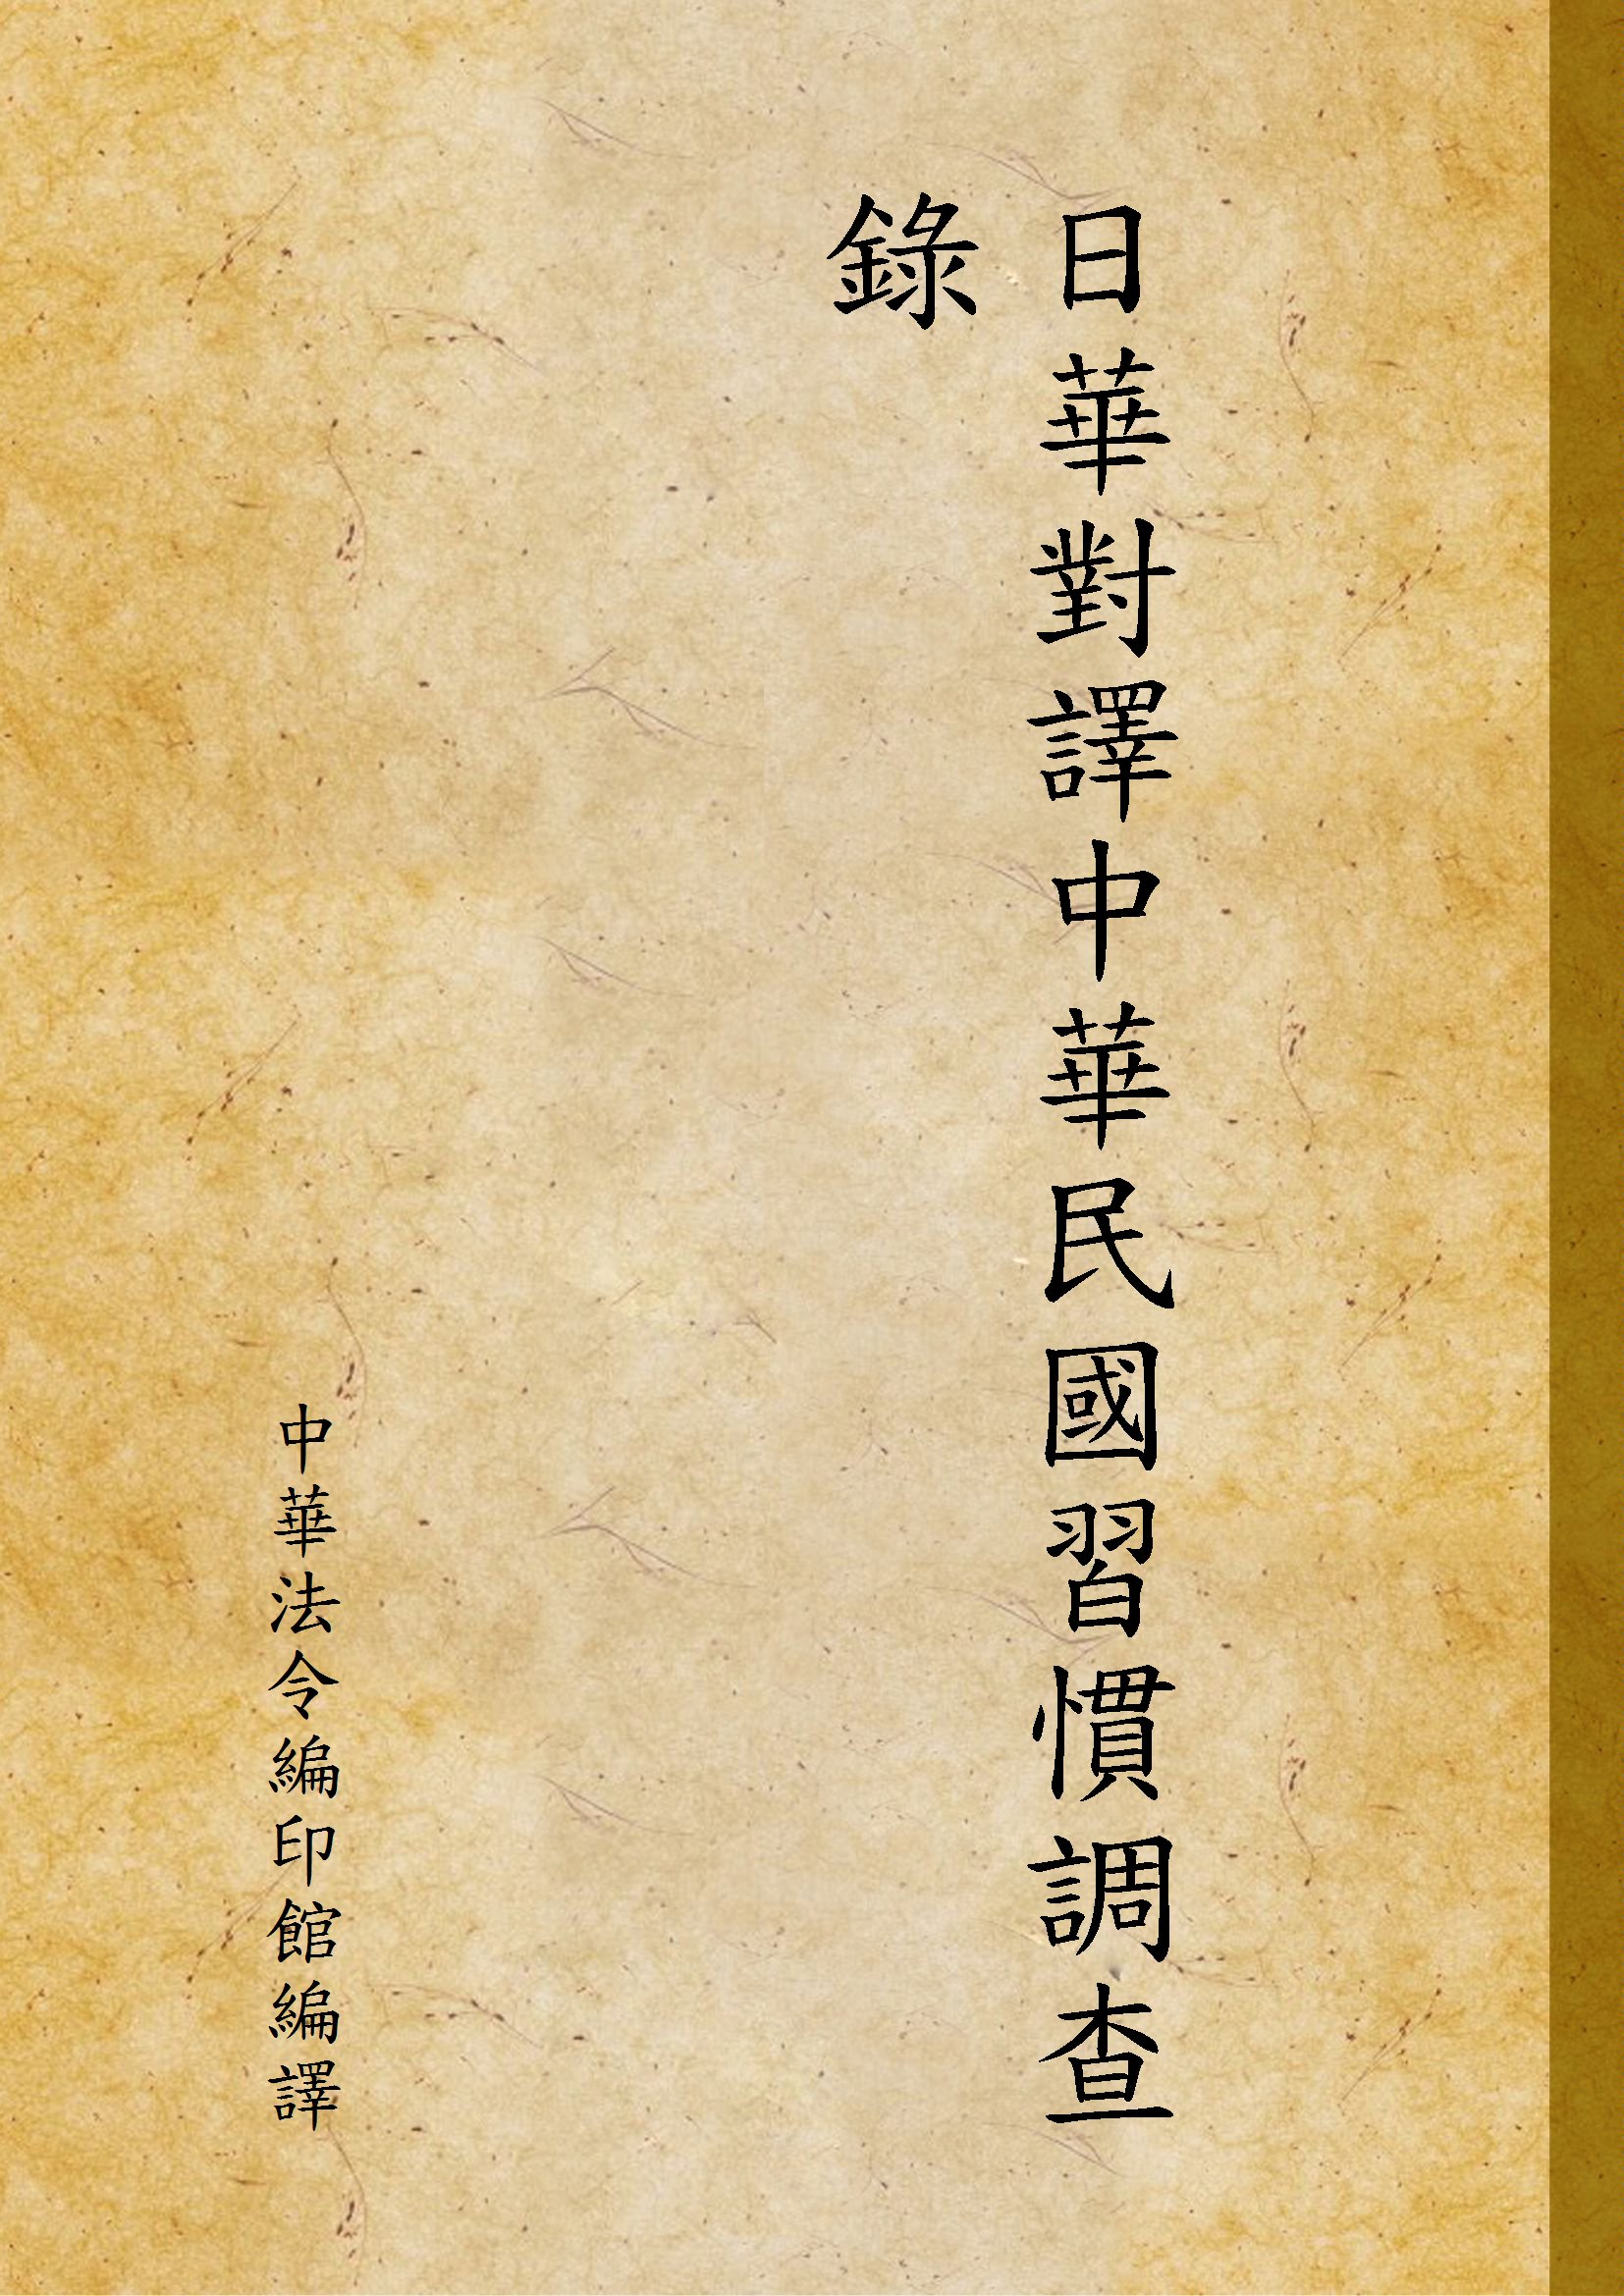 日華對譯中華民國習慣調查
錄
中華法令編印館編譯